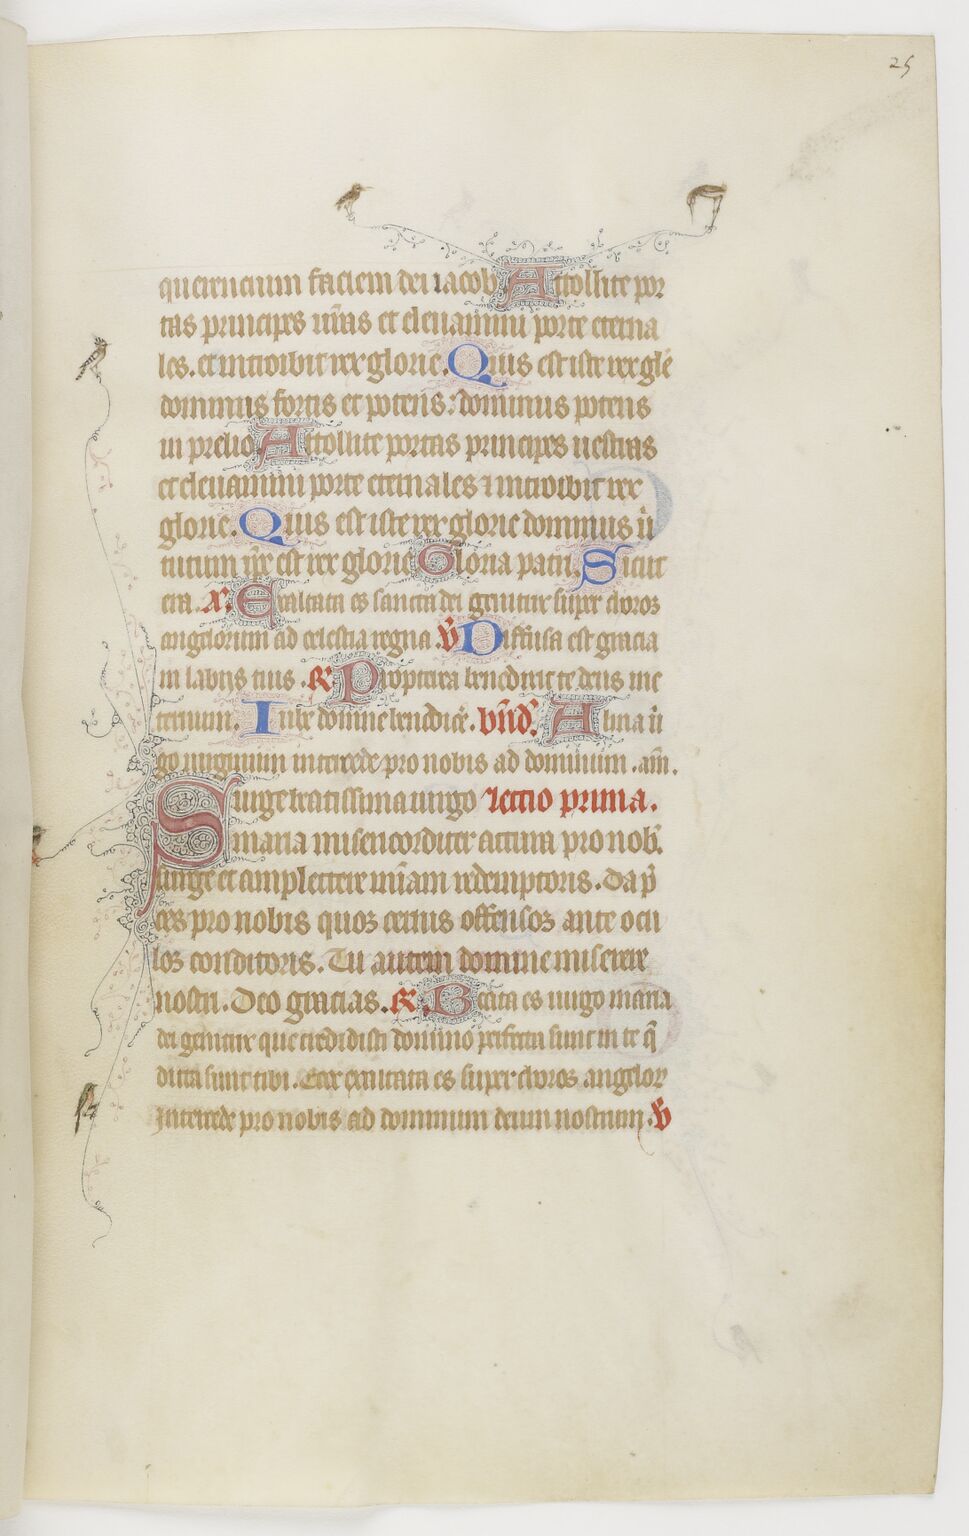 25
querencium faciem dei iacob Attollite por
tas principes uras et eleuamini porte eterna
les. et introibit rex glorie. Quis est iste rex gle
dominus fortis et potens: dominus potens
in prelio Attollite portas principes uestras
et eleuamini porte eternales et introibit rex
glorie. Quis est iste rex glorie dominus ui
tutum ipse est rex glorie Gloria patri. Sicut
era. Exaltata es sancta dei genitrix super choros
angelorum ad celestia regna. V Diffusa est gracia
in labiis tuis. R Propterea benedixit te deus in e
ternum. Iube domine benedice. bnd. Alma ui
go uirginum intercede pro nobis ad dominum. am.
Surge beatissima uirgo lectio prima.
maria misericorditer actura pro nob.
surge et amplectere uiam redemptoris. Da p
ces pro nobis quos cernis offensos ante ocu
los conditoris. Tu autem domine miserere
nostri. Deo gracias. R Beata es uirgo maria
dei genitrix que credidisti domino perfecta sunt in te q
dicta sunt tibi. Ecce exaltata es super choros angelor
Intercede pro nobis ad dominum deum nostrum. V